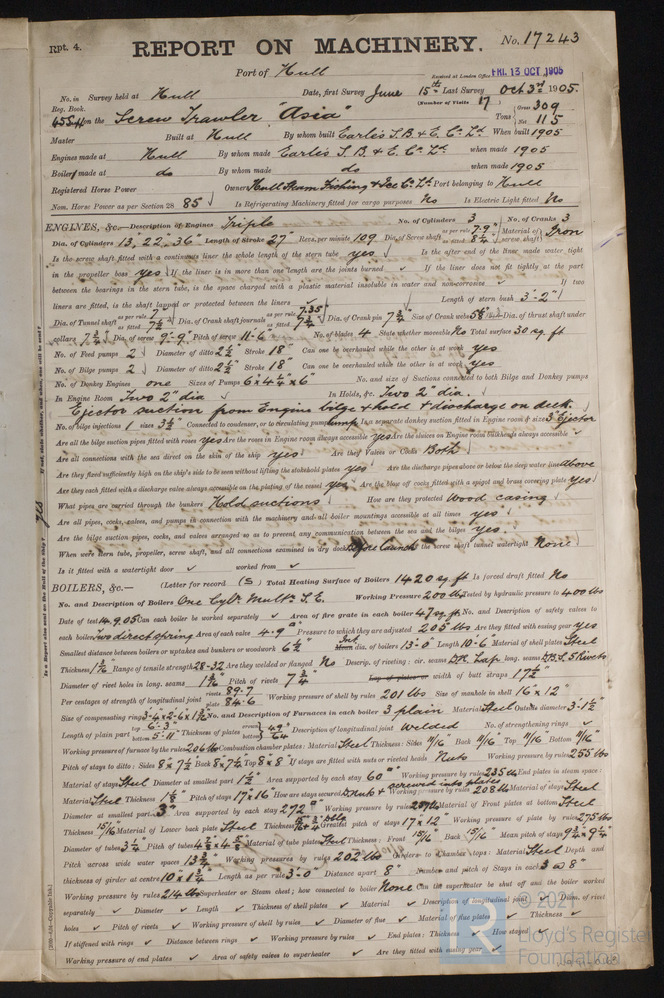 Rpt. 4.
REPORT ON MACHINERY.
No. 17243
Port of Hull
Received at London Office FRI. 13 OCT 1905
No. in Survey held at Hull Date, first Survey June 15th Last Survey Oct 3rd 1905.
Reg. Book. (Number of Visits 17)
on the Screw Trawler "Asia" Tons Gross 309 Net 115
Master Built at Hull By whom built Earle's S.B. & E. Co Ld When built 1905
Engines made at Hull By whom made Earle's S.B. & E. Co Ld when made 1905
Boilers made at do By whom made do when made 1905
Registered Horse Power Owners Hull Steam Fishing & Ice Co Ld Port belonging to Hull
Nom. Horse Power as per Section 28 85 Is Refrigerating Machinery fitted for cargo purposes No Is Electric Light fitted No
ENGINES, &c.— Description of Engines Triple No. of Cylinders 3 No. of Cranks 3
Dia. of Cylinders 13, 22, 36" Length of Stroke 27" Revs. per minute 109 Dia. of Screw shaft as per rule 7.9" as fitted 8¼" Material of screw shaft Iron
Is the screw shaft fitted with a continuous liner the whole length of the stern tube yes Is the after end of the liner made water tight
in the propeller boss yes If the liner is in more than one length are the joints burned ✓ If the liner does not fit tightly at the part
between the bearings in the stern tube, is the space charged with a plastic material insoluble in water and non-corrosive ✓ If two
liners are fitted, is the shaft lapped or protected between the liners ✓ Length of stern bush 3'-2"
Dia. of Tunnel shaft as per rule 7" as fitted 7½" Dia. of Crank shaft journals as per rule 7.35" as fitted 7¾" Dia. of Crank pin 7¾" Size of Crank webs Dia. of thrust shaft under
collars 7¾" Dia. of screw 9'-9" Pitch of screw 11-6 No. of blades 4 State whether moveable No Total surface 30 sq. ft
No. of Feed pumps 2 Diameter of ditto 2½" Stroke 18" Can one be overhauled while the other is at work yes
No. of Bilge pumps 2 Diameter of ditto 2½" Stroke 18" Can one be overhauled while the other is at work yes
No. of Donkey Engines one Sizes of Pumps 6" x 4½" x 6" No. and size of Suctions connected to both Bilge and Donkey pumps
In Engine Room Two 2" dia In Holds, &c. Two 2" dia.
Ejector suction from Engine bilge & hold & discharge on deck.
No. of bilge injections 1 sizes 3½" Connected to condenser, or to circulating pump pump Is a separate donkey suction fitted in Engine room & size 3" Ejector
Are all the bilge suction pipes fitted with roses yes Are the roses in Engine room always accessible yes Are the sluices on Engine room bulkheads always accessible ✓
Are all connections with the sea direct on the skin of the ship yes Are they Valves or Cocks Both
Are they fixed sufficiently high on the ship's side to be seen without lifting the stokehold plates yes Are the discharge pipes above or below the deep water line above
Are they each fitted with a discharge valve always accessible on the plating of the vessel yes Are the blow off cocks fitted with a spigot and brass covering plate yes
What pipes are carried through the bunkers Hold suctions How are they protected Wood casing
Are all pipes, cocks, valves, and pumps in connection with the machinery and all boiler mountings accessible at all times yes
Are the bilge suction pipes, cocks, and valves arranged so as to prevent any communication between the sea and the bilges yes.
When were stern tube, propeller, screw shaft, and all connections examined in dry dock Before launch Is the screw shaft tunnel watertight None
Is it fitted with a watertight door ✓ worked from ✓
BOILERS, &c.— (Letter for record (S) Total Heating Surface of Boilers 1420 sq. ft Is forced draft fitted No
No. and Description of Boilers One Cylr Multr S.E. Working Pressure 200 lbs Tested by hydraulic pressure to 400 lbs
Date of test 14.9.05 Can each boiler be worked separately ✓ Area of fire grate in each boiler 47 sq. ft. No. and Description of safety valves to
each boiler two direct spring Area of each valve 4.9" Pressure to which they are adjusted 205 lbs Are they fitted with easing gear yes
Smallest distance between boilers or uptakes and bunkers or woodwork 6½" Int dia. of boilers 13'-0" Length 10-6" Material of shell plates Steel
Thickness 1 3/16" Range of tensile strength 28-32 Are they welded or flanged No Descrip. of riveting: cir. seams D.R. Lap long. seams D.B.S. 5 Rivets
Diameter of rivet holes in long. seams 1 3/16" Pitch of rivets 7¾" Lap of plates or width of butt straps 17½"
Per centages of strength of longitudinal joint rivets 89.7 plate 84.6 Working pressure of shell by rules 201 lbs Size of manhole in shell 16" x 12"
Size of compensating ring No. and Description of Furnaces in each boiler 3 plain Material Steel Outside diameter 3'-1½"
Length of plain part top 6'-3" bottom 5'-11" Thickness of plates crown bottom 49/64 Description of longitudinal joint welded No. of strengthening rings ✓
Working pressure of furnace by the rules 206 lbs Combustion chamber plates: Material Steel Thickness: Sides 11/16" Back 11/16 Top 11/16" Bottom 11/16"
Pitch of stays to ditto: Sides 8" x 7½" Back 8" x 7½ Top 8" x 8" If stays are fitted with nuts or riveted heads Nuts Working pressure by rules 255 lbs
Material of stays Steel Diameter at smallest part 1½" Area supported by each stay 60" Working pressure by rules 235 lbs End plates in steam space:
Material Steel Thickness 1⅛" Pitch of stays 17" x 16" How are stays secured D. nuts & screwed into plates Working pressure by rules 208 lbs Material of stays Steel
Diameter at smallest part 3" Area supported by each stay 272" Working pressure by rules Material of Front plates at bottom Steel
Thickness 15/16" Material of Lower back plate Steel Thickness Greatest pitch of stays 17" x 12" Working pressure of plate by rules 275 lbs
Diameter of tubes 3¼" Pitch of tubes Material of tube plates Steel Thickness: Front 15/16" Back 15/16" Mean pitch of stays 9¾" x 9¼"
Pitch across wide water spaces 13¾" Working pressures by rules 202 lbs Girders to Chamber tops: Material Steel Depth and
thickness of girder at centre 10" x 1¾" Length as per rule 3'-0" Distance apart 8" Number and pitch of Stays in each 3 @ 8"
Working pressure by rules 214 lbs Superheater or Steam chest; how connected to boiler None Can the superheater be shut off and the boiler worked
separately ✓ Diameter ✓ Length ✓ Thickness of shell plates ✓ Material ✓ Description of longitudinal joint ✓ Diam. of rivet
holes ✓ Pitch of rivets ✓ Working pressure of shell by rules ✓ Diameter of flue ✓ Material of flue plates ✓ Thickness ✓
If stiffened with rings ✓ Distance between rings ✓ Working pressure by rules ✓ End plates: Thickness ✓ How stayed ✓
Working pressure of end plates ✓ Area of safety valves to superheater ✓ Are they fitted with easing gear ✓
© 2021
Lloyd's Register
Foundation